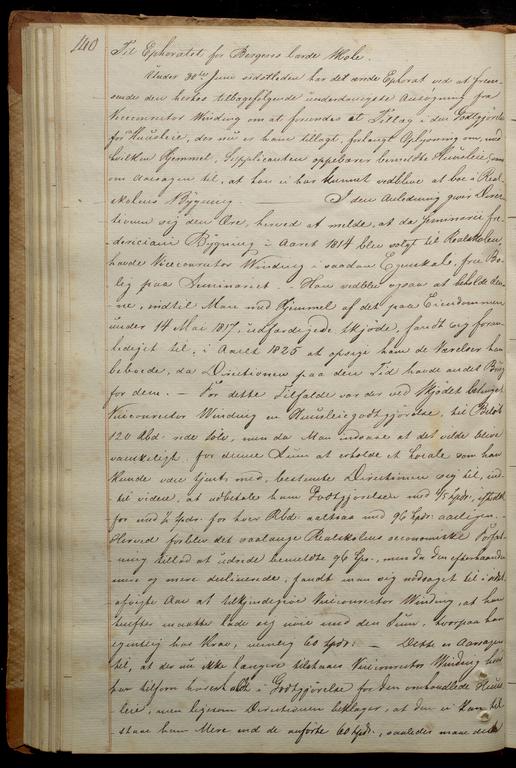 140
Til Ephoratet for Bergens lærde Skole.
Under 30te Juni sidstleden har det ærede Ephorat ved at frem-
sende den herhos tilbagefølgende underdanigste Ansøgning fra
Viceconrector Winding om at forundes et Tillæg i den Godtgjørelse
for Huusleie, der nu er ham tillagt, forlangt Oplysning om, med
hvilken Hjemmel, Supplicanten oppebærer bemeldte Huusleie, samt
om Aarsagen til, at han ei har kunnet vedblive at boe i Real-
skolens Bygning. — I den Anledning giver Direc-
tionen sig den Ære, herved at melde, at da Seminarii Fre-
dericiani Bygning i Aaret 1814 blev solgt til Realskolen,
havde Viceconrector Winding i saadan Egenskab, frie Bo-
lig paa Seminariet. — Han vedblev ogsaa at beholde den-
ne, indtil Man med Hjemmel af det paa Eiendommen
under 14 Mai 1817, udfærdigede Skjøde, fandt sig foran-
lediget til, i Aaret 1825 at opsige ham de Værelser han
beboede, da Directionen paa den Tid havde andet Brug
for dem. — For dette Tilfælde var der ved Skjødet betinget
Viceconrector Winding en Huusleiegodtgjørelse, til Beløb
120 Rbd. rede Sølv, men da Man indsaae at det vilde blive
vanskeligt for denne Sum at erholde et Locale som han
kunde være tjent med, bestemte Directionen sig til, ind-
til videre, at udbetale ham Godtgjørelsen med
for med ½ Spdr. for hver Rbd. aaltsaa med 96 Spdr. aarligen. —
Herved forblev det saalænge Realskolens oeconomiske Forfat-
ning tillod at udrede bemeldte 96 Sp., men da den efterhaanden
mere og mere declinerede, fandt man sig nødsaget til i sidst-
afvigte Aar at tilkjendegive Viceconrector Winding, at han
herefter maatte lade sig nøie med den Sum, hvorpaa han
egentlig har Krav, nemlig 60 Spdr. — Dette er Aarsagen
til, at der nu ikke længere tilstaaes Viceconrector Winding hvad
han tilforn har havt i Godtgjørelse for den omhandlede Huus-
leie, men ligesom Directionen beklager, at den ei kan til-
staae ham Mere end de anførte 60 Spdr., saaledes maae den